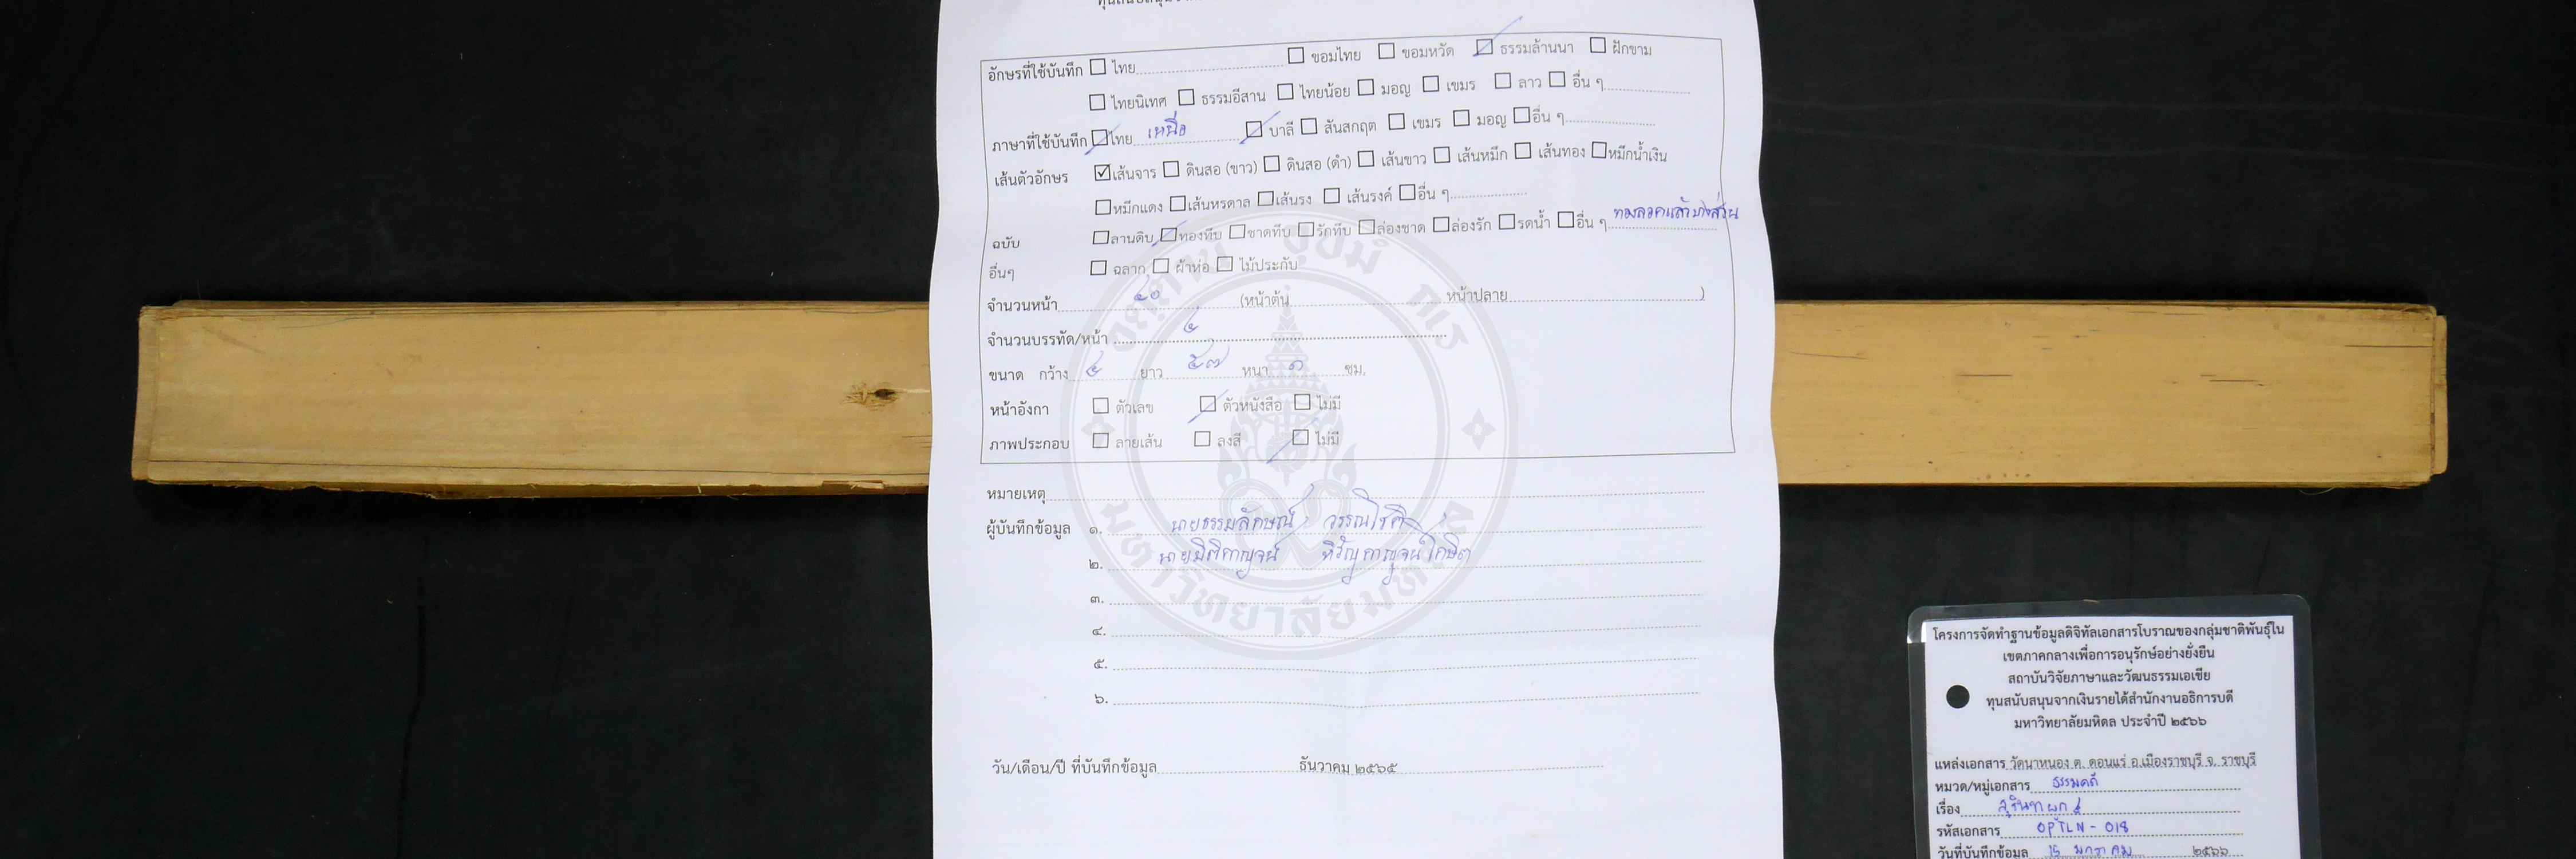 อักษรที่ใช้บันทึก ☐ ไทย ☐ ขอมไทย ☐ ขอมหวัด ☑ ธรรมล้านนา ☐ ฝักขาม
☐ ไทยนิเทศ ☐ ธรรมอีสาน ☐ ไทยน้อย ☐ มอญ ☐ เขมร ☐ ลาว ☐ อื่น ๆ
ภาษาที่ใช้บันทึก ☑ ไทย เหนือ ☑ บาลี ☐ สันสกฤต ☐ เขมร ☐ มอญ ☐ อื่น ๆ
เส้นตัวอักษร ☑ เส้นจาร ☐ ดินสอ (ขาว) ☐ ดินสอ (ดำ) ☐ เส้นขาว ☐ เส้นหมึก ☐ เส้นทอง ☐ หมึกน้ำเงิน
☐ หมึกแดง ☐ เส้นหรดาล ☐ เส้นรง ☐ เส้นรงค์ ☐ อื่น ๆ
ฉบับ ☐ ลานดิบ ☑ ทองทึบ ☐ ชาดทึบ ☐ รักทึบ ☐ ล่องชาด ☐ ล่องรัก ☐ รดน้ำ ☐ อื่น ๆ
อื่นๆ ☐ ฉลาก ☐ ผ้าห่อ ☐ ไม้ประกับ
จำนวนหน้า ๕๐ (หน้าต้น หน้าปลาย )
จำนวนบรรทัด/หน้า ๕
ขนาด กว้าง ๕ ยาว ๕๗ หนา ๑ ซม.
หน้าอังกา ☐ ตัวเลข ☑ ตัวหนังสือ ☐ ไม่มี
ภาพประกอบ ☐ ลายเส้น ☐ ลงสี ☑ ไม่มี
หมายเหตุ
ผู้บันทึกข้อมูล ๑. นายธรรมลักษณ์ วรรณโชติ
๒. หิรัญกาญจน์โฆษิต
๓.
๔.
๕.
๖.
วัน/เดือน/ปี ที่บันทึกข้อมูล ธันวาคม ๒๕๖๕
มหาวิทยาลัยมหิดล
โครงการจัดทำฐานข้อมูลดิจิทัลเอกสารโบราณของกลุ่มชาติพันธุ์ใน
เขตภาคกลางเพื่อการอนุรักษ์อย่างยั่งยืน
สถาบันวิจัยภาษาและวัฒนธรรมเอเชีย
ทุนสนับสนุนจากเงินรายได้สำนักงานอธิการบดี
มหาวิทยาลัยมหิดล ประจำปี ๒๕๖๖
แหล่งเอกสาร วัดนาหนอง ต. ดอนแร่ อ.เมืองราชบุรี จ. ราชบุรี
หมวด/หมู่เอกสาร ธรรมคดี
เรื่อง
รหัสเอกสาร OPTLN - 018
วันที่บันทึกข้อมูล 15 มกราคม ๒๕๖๖